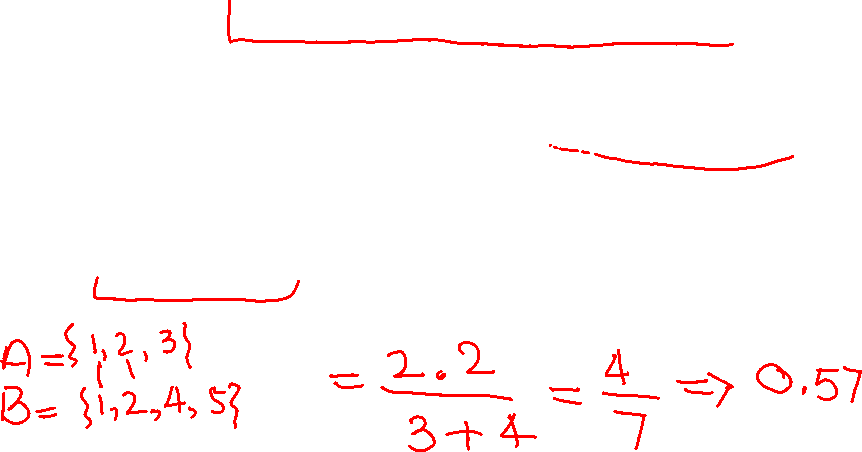 A = {1, 2, 3}
B = {1, 2, 4, 5}
= 2.2 / 3 + 4 = 4 / 7 => 0.57